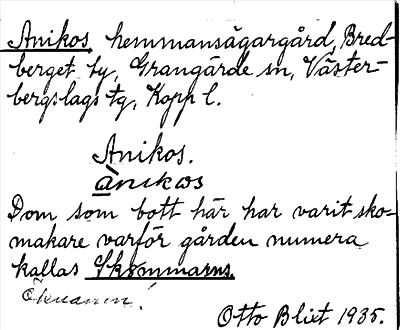 Anikos, hemmansägargård, Bred-
berget by, Grangärde sn, Väster-
bergslags tg, Kopp l.
Anikos.
ànikøs
Dom som bott här har varit sko-
makare varför gården numera
kallas Skommarns.
Öknamn!
Otto Blixt 1935.